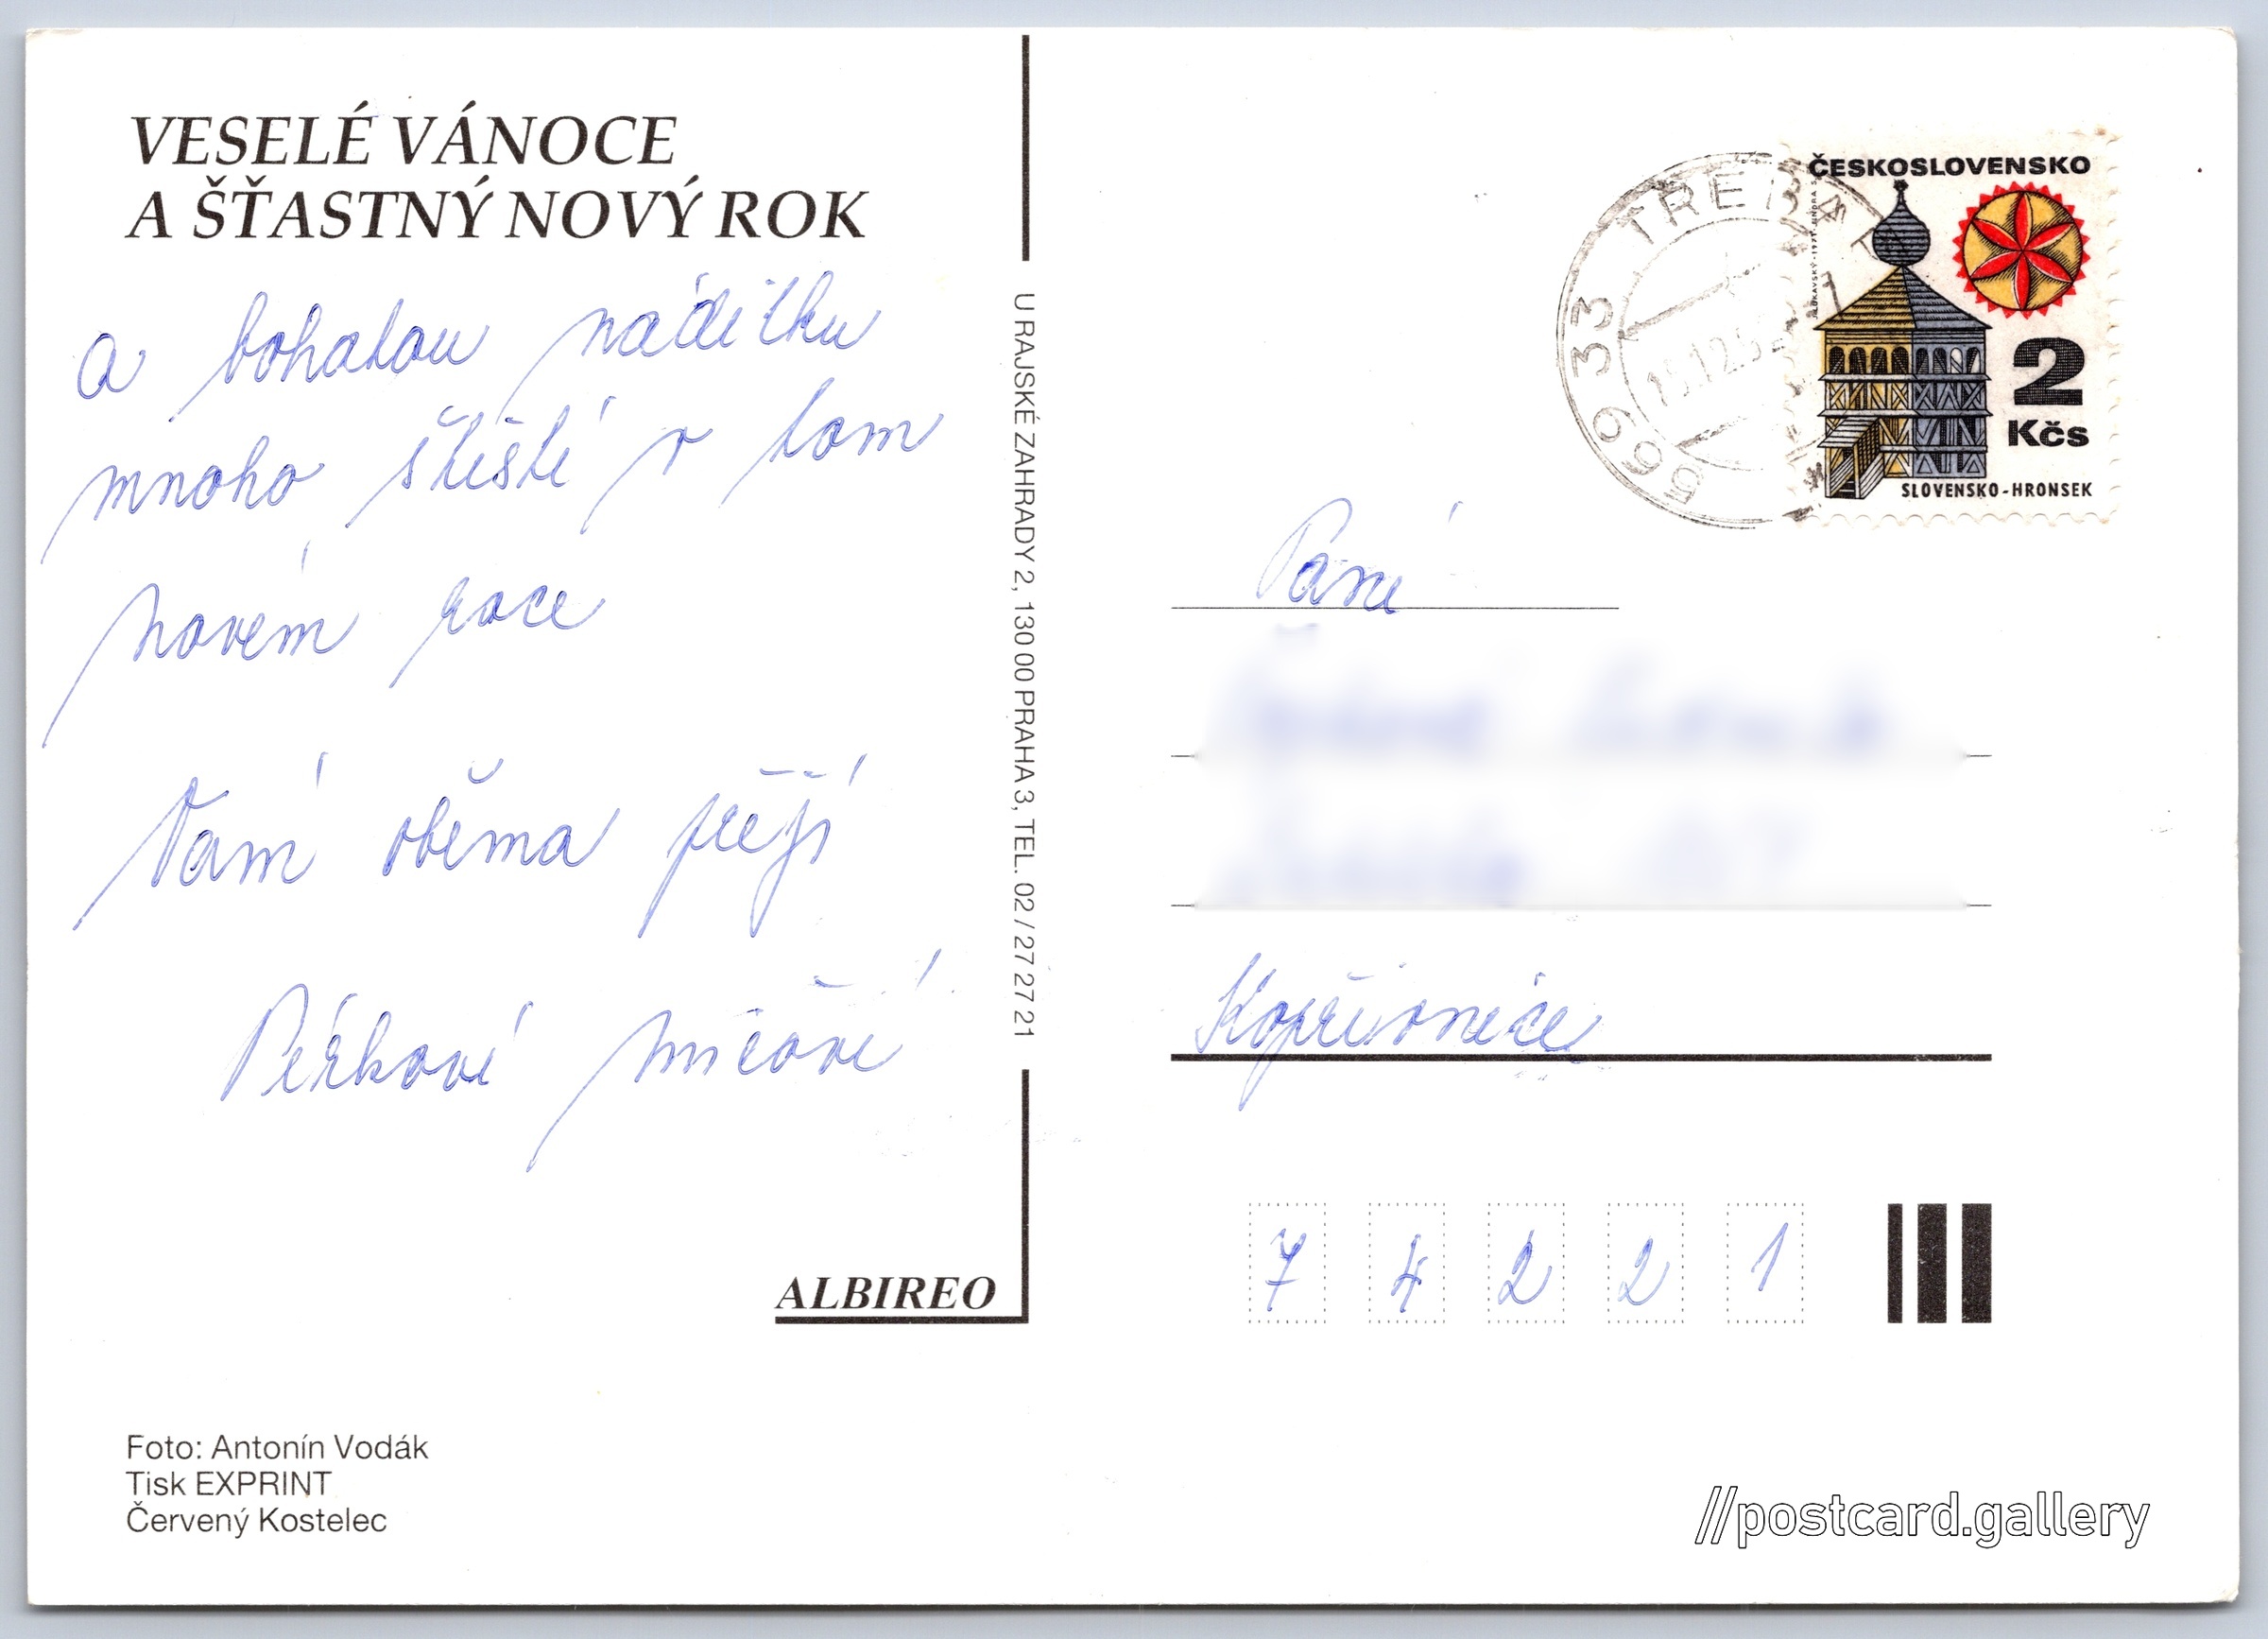 VESELÉ VÁNOCE
A ŠŤASTNÝ NOVÝ ROK
a bohatou nadílku
mnoho štěstí v tom
novém roce
Vám oběma přejí
Pírkovi
ALBIREO
Foto: Antonín Vodák
Tisk EXPRINT
Červený Kostelec
U RAJSKÉ ZAHRADY 2, 130 00 PRAHA 3, TEL. 02 / 27 27 21
569 33 TŘEBA
ČESKOSLOVENSKO
2
Kčs
SLOVENSKO-HRONSEK
Paní
Kopřivnice
7 4 2 2 1
//postcard.gallery